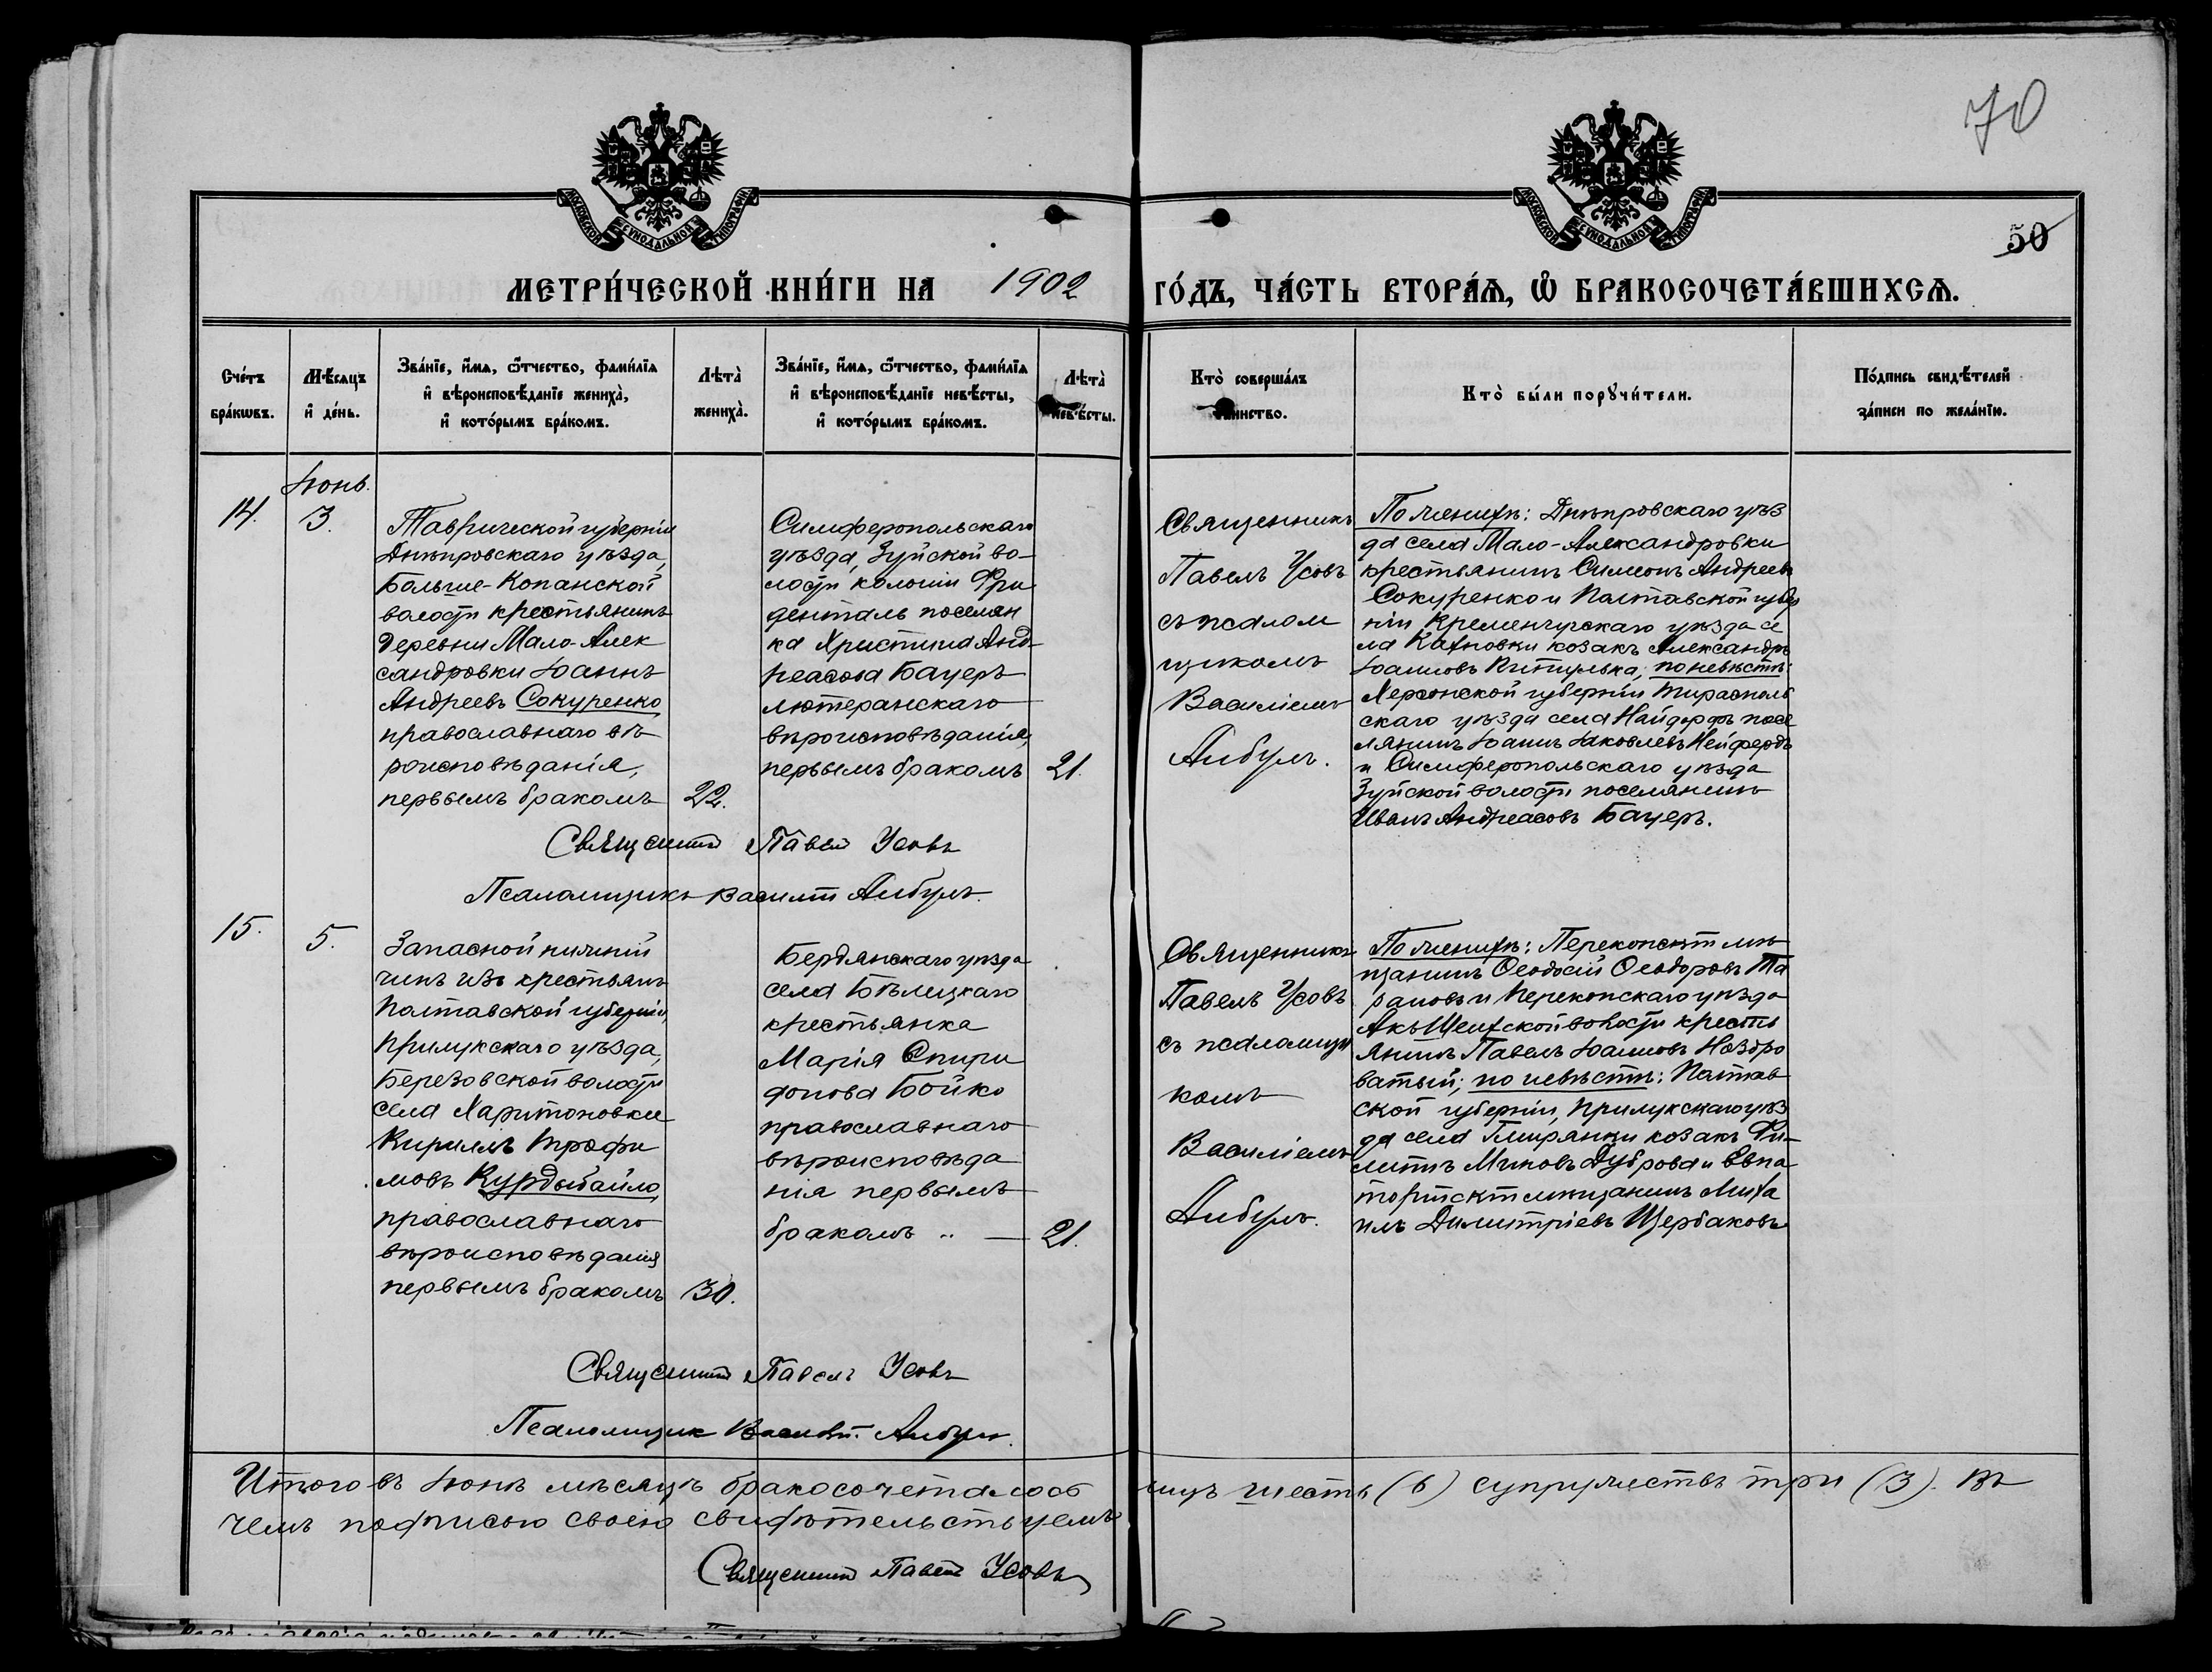 70
МОСКОВСКОЙ СѴНОДАЛЬНОЙ ТИПОГРАФІИ
МОСКОВСКОЙ СѴНОДАЛЬНОЙ ТИПОГРАФІИ
50
МЕТРИ́ЧЕСКОЙ КНИ́ГИ НА 1902 ГО́ДЪ, ЧА́СТЬ ВТОРА́Ѧ, Ѡ҆ БРАКОСОЧЕТА́ВШИХСѦ.
Сче́тъ
бра́кѡвъ.
Мѣ́сяцъ
и҆ де́нь.
Зва́нїе, и҆́мѧ, ѻ҆́тчество, фами́лїѧ
и҆ вѣроисповѣ́данїе жениха̀,
и҆ кото́рымъ бра́комъ.
Лѣта̀
жениха̀.
Зва́нїе, и҆́мѧ, ѻ҆́тчество, фами́лїѧ
и҆ вѣроисповѣ́данїе невѣ́сты,
и҆ кото́рымъ бра́комъ.
Лѣта̀
невѣ́сты.
Кто̀ соверша́лъ
таинство.
Кто̀ бы́ли порꙋчи́тели.
По́дпись свидѣ́телей
за́писи по жела́нїю.
Іюнь.
14.
3.
Таврической губерніи
Днѣпровскаго уѣзда,
Больше-Копанской
волости крестьянинъ
деревни Мало-Алек
сандровки Іоаннъ
Андреевъ Сокуренко
православнаго вѣ
роисповѣданія,
первымъ бракомъ
22.
Симферопольскаго
уѣзда, Зуйской во-
лости колоніи Фри
денталь поселян
ка Христина Анд-
реасова Бауеръ
лютеранскаго
вѣроисповѣданія,
первымъ бракомъ
21.
Священникъ
Павелъ Усовъ
съ псалом
щикомъ
Василіемъ
Анбулъ.
По женихѣ: Днѣпровскаго уѣз
да села Мало-Александровки
крестьянинъ Симеонъ Андреевъ
Сокуренко и Полтавской губер
ніи Кременчугскаго уѣзда се
ла козакъ Александръ
Іоанновъ по невѣстѣ:
Херсонской губерніи Тирасполь
скаго уѣзда села Найдорфъ посе
лянинъ Іоаннъ Іаковлевъ
и Симферопольскаго уѣзда
Зуйской волости поселянинъ
Иванъ Андреасовъ Бауеръ.
Священникъ Павелъ Усовъ
Псаломщикъ Василій Анбулъ.
15.
5.
Запасной нижній
чинъ изъ крестьянъ
Полтавской губерніи,
Прилукскаго уѣзда,
Березовской волости
села Харитоновки
Кириллъ Трофи
мовъ Курдыбайло,
православнаго
вѣроисповѣданія
первымъ бракомъ
30.
Бердянскаго уѣзда
села Бѣлицкаго
крестьянка
Марія Спири
донова Бойко
православнаго
вѣроисповѣда
нія первымъ
бракомъ
21.
Священникъ
Павелъ Усовъ
съ псаломщи
комъ
Василіемъ
Анбулъ.
По женихѣ: Перекопскій мѣ
щанинъ Ѳеодосій Ѳеодоровъ Та
рановъ и Перекопскаго уѣзда
Акъ-Шеихской волости кресть
янинъ Павелъ Іоанновъ Ноздро
ватый; по невѣстѣ: Полтав
ской губерніи, Прилукскаго уѣз
да села козакъ Фи-
липпъ Дуброва и Евпа
торійскій мѣщанинъ Миха
илъ Димитріевъ Щербаковъ
Священникъ Павелъ Усовъ
Псаломщикъ Василій Анбулъ.
Итого въ Іюнѣ мѣсяцѣ бракосочеталось лицъ шесть (6) супружествъ три (3). Въ
чемъ подписью своею свидѣтельствуемъ
Священникъ Павелъ Усовъ